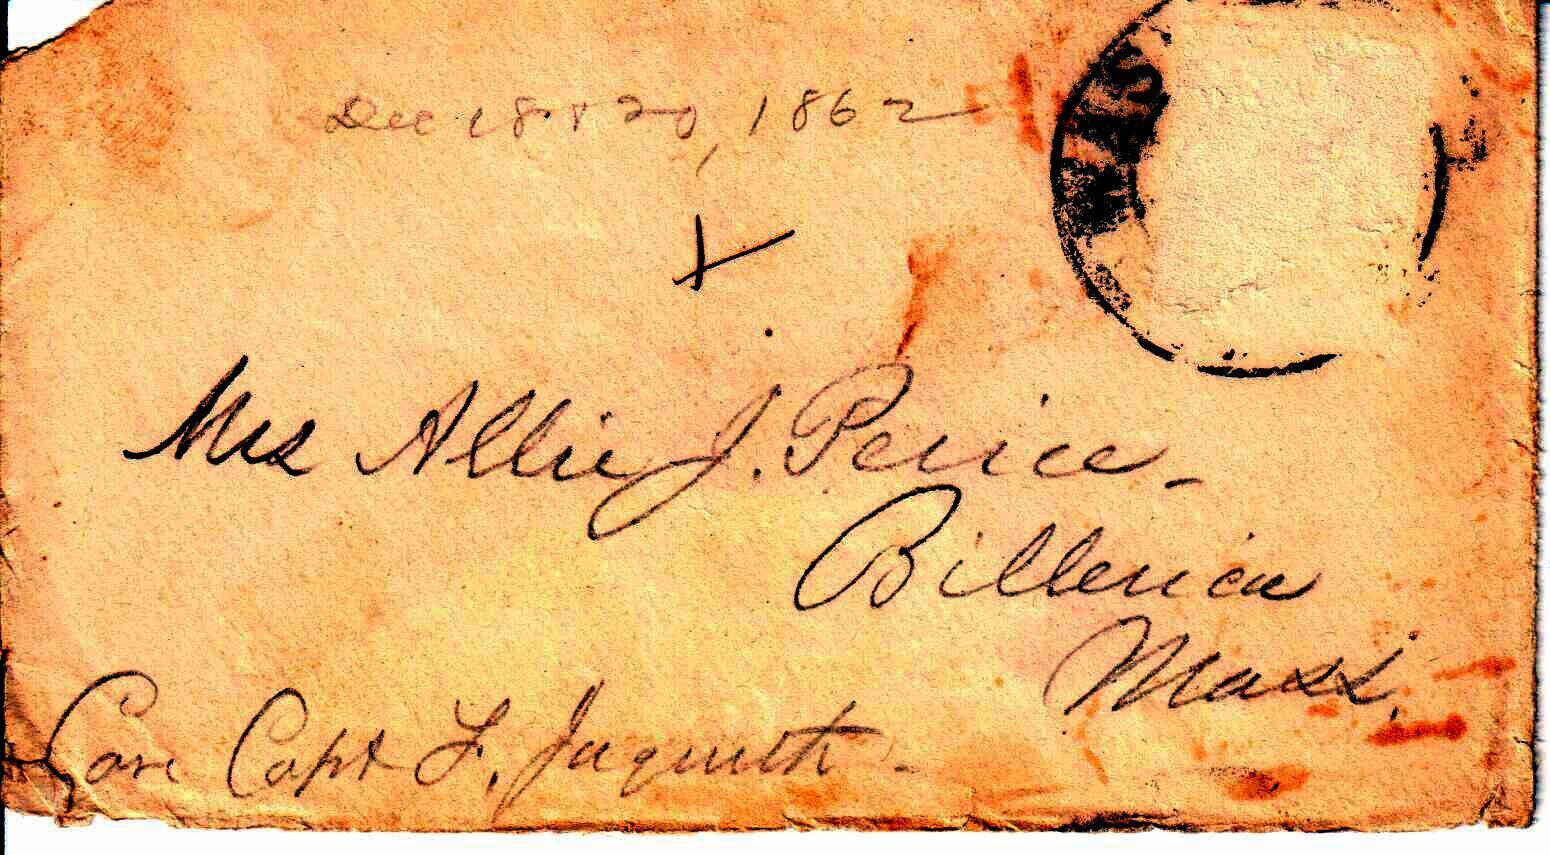 Dec 18 & 20, 1862
WAS
Mrs Allie J. Peirce.
Billerica
Mass.
Care Capt F. Jaquith.